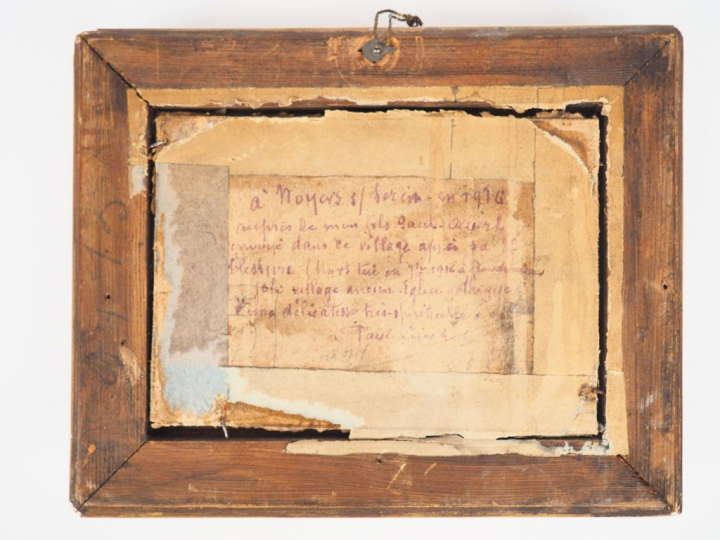 à Noyers s/ Serein - en 1916
auprès de mon fils Paul
envoyé dans ce village après sa
blessure (Mort tué en 7bre 1916 à
Joli village ancien Eglise gothique
d'une délicatesse très
Paul